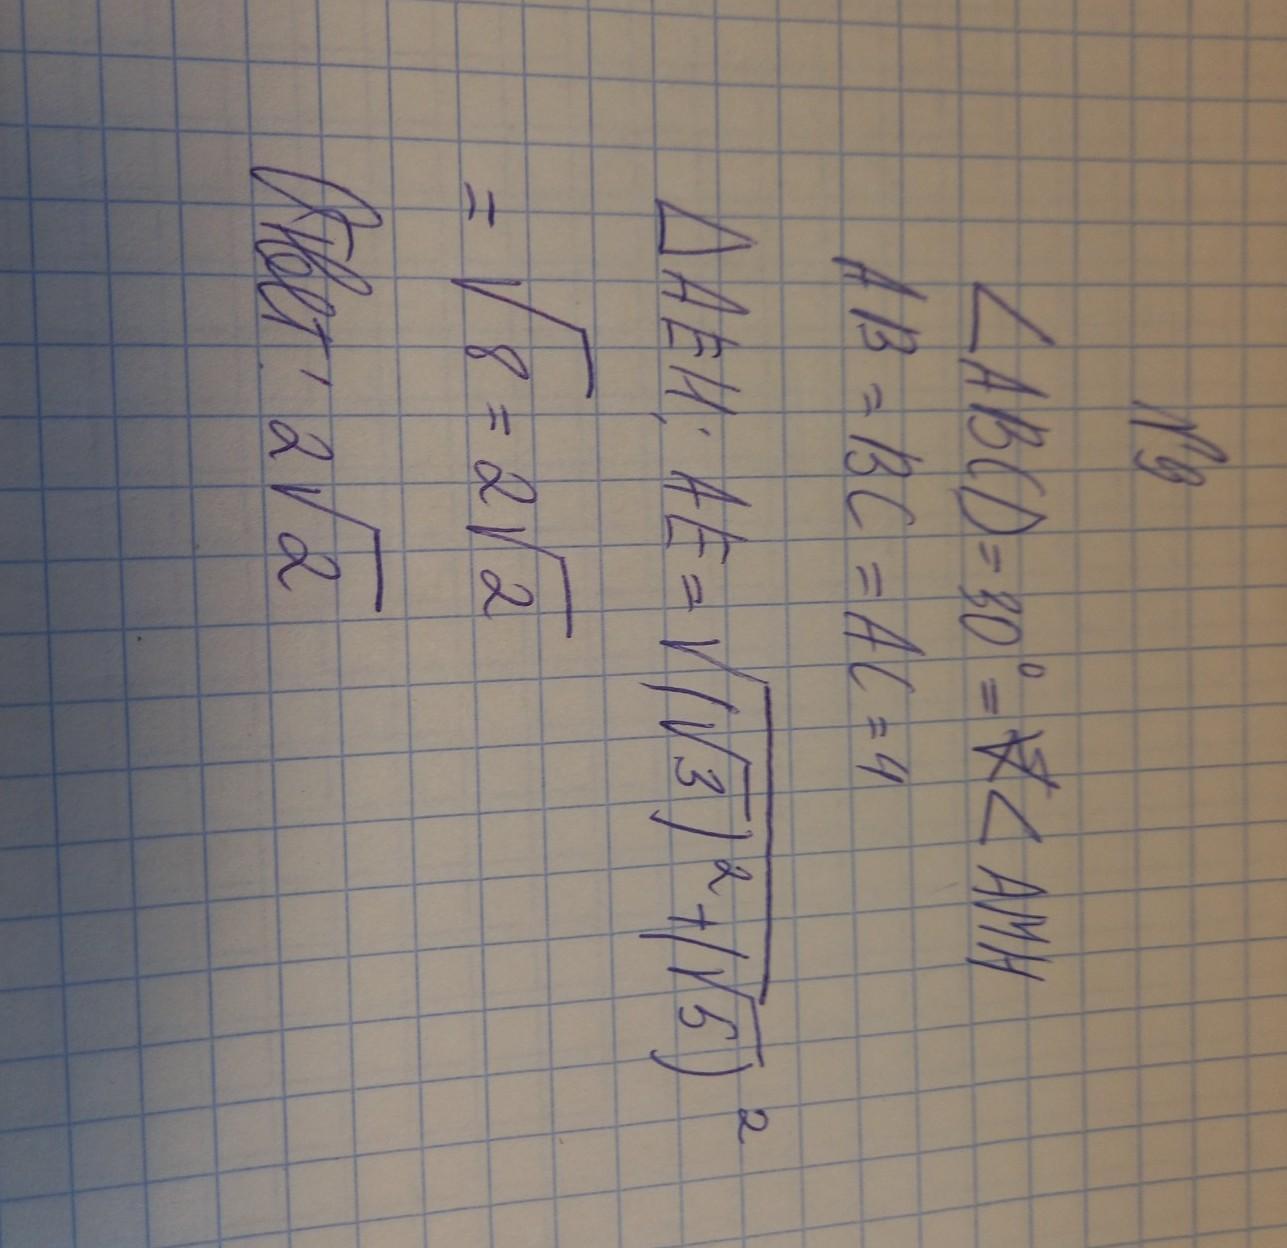 №9
∠ABCD = 30° = ∠AMH
AB = BC = AC = 4
△AEH; AE = √((√3)² + (√5)²)
= √8 = 2√2
Ответ: 2√2